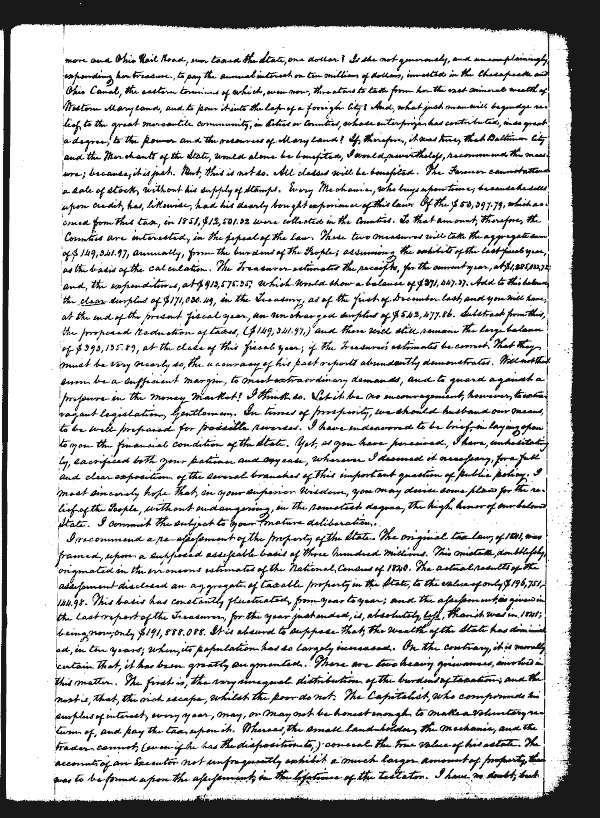 more and Ohio Rail Road, ever taxed the State, one dollar? Is she not generously, and uncomplainingly,
expending her treasure, to pay the annual interest on ten millions of dollars, invested in the Chesapeake and
Ohio Canal, the eastern terminus of which, even now, threatens to take from her the vast mineral wealth of
Western Maryland, and to pour it into the lap of a foreign City? And, what just man will begrudge re-
lief, to the great mercantile community, in Cities or Counties, whose enterprize has contributed, in so great
a degree, to the power and the resources of Maryland? If, therefore, it was true, that Baltimore City
and the Merchants of the State, would alone be benefited, I would, nevertheless, recommend the meas-
ure; because, it is just. But, this is not so. All classes will be benefited. The Farmer cannot attend
a sale of stock, without his supply of stamps. Every Mechanic, who buys a pen time, because he sells
upon credit, has, likewise, had his dearly bought experience of this law. Of the $50,397.79, which ac-
crued from this tax, in 1851, $12,501.32 were collected in the Counties. To that amount, therefore, the
Counties are interested, in the repeal of the law. These two measures will take the aggregate sum
of $149,341.97, annually, from the burdens of the People; assuming the exhibits of the last fiscal year,
as the basis of the calculation. The Treasurer estimates the receipts, for the current year, at
and, the expenditures, at $913,575.35; which would show a balance of $371,447.37. Add to this balance,
the clear surplus of $171,030.49, in the Treasury, as of the first of December last, and you will have,
at the end of the present fiscal year, an uncharged surplus of $542,477.86. Subtract from this,
the proposed reduction of taxes, ($149,341.97,) and there will still remain the large balance
of $393,135.89, at the close of this fiscal year; if the Treasurer's estimates be correct. That they
must be very nearly so, the accuracy of his past reports abundantly demonstrates. Will not this
sum be a sufficient margin, to meet extraordinary demands, and to guard against a
pressure in the money market? I think so. Let it be no encouragement, however, to extra-
vagant legislation, Gentlemen. In times of prosperity, we should husband our means,
to be well prepared for possible reverses. I have endeavored to be brief, in laying open
to you the financial condition of the State. Yet, as you have perceived, I have, unhesitating-
ly, sacrificed both your patience and my ease, wherever I deemed it necessary, for a full
and clear exposition of the several branches of this important question of public policy. I
most sincerely hope that, in your superior wisdom, you may devise some plan for the re-
lief of the People, without endangering, in the remotest degree, the high honor of our beloved
State. I commit the subject to your mature deliberation.
I recommend a re-assessment of the property of the State. The original tax law, of 1841, was
framed, upon a supposed assessable basis of three hundred millions. This mistake, doubtlessly,
originated in the erroneous estimates of the National Census of 1840. The actual results of the
assessment disclosed an aggregate of taxable property in the State, to the value of only $196,751,-
144.98. This basis has constantly fluctuated, from year to year; and the assessment, as given in
the last report of the Treasurer, for the year just ended, is, absolutely less, than it was in 1841;
being, now, only $191,888,088. It is absurd to suppose that, the wealth of the State has diminish-
ed, in ten years, when, its population has so largely increased. On the contrary, it is morally
certain that, it has been greatly augmented. There are two heavy grievances, involved in
this matter. The first is, the very unequal distribution of the burdens of taxation; and the
next is, that, the rich escape, whilst the poor do not. The Capitalist, who compounds his
surplus of interest, every year, may, or may not be honest enough to make a voluntary re-
turn of, and pay the tax, upon it. Whereas, the small landholder, the mechanic, and the
trader cannot, (even if he has the disposition to,) conceal the true value of his estate. The
accounts of an Executor not unfrequently, exhibit a much larger amount of property, than
was to be found upon the assessment, in the lifetime of the testator. I have no doubt, but